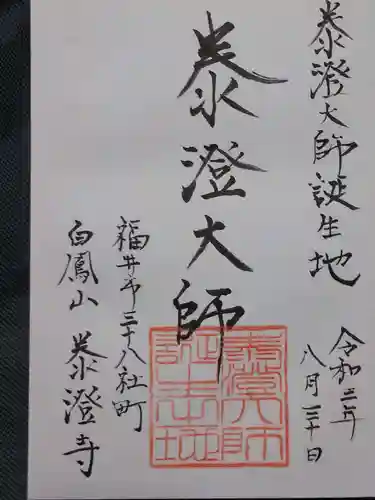 泰澄大師誕生地
令和三年
八月三十日
泰澄大師
福井市三十八社町
白鳳山 泰澄寺
泰澄大師
誕生地